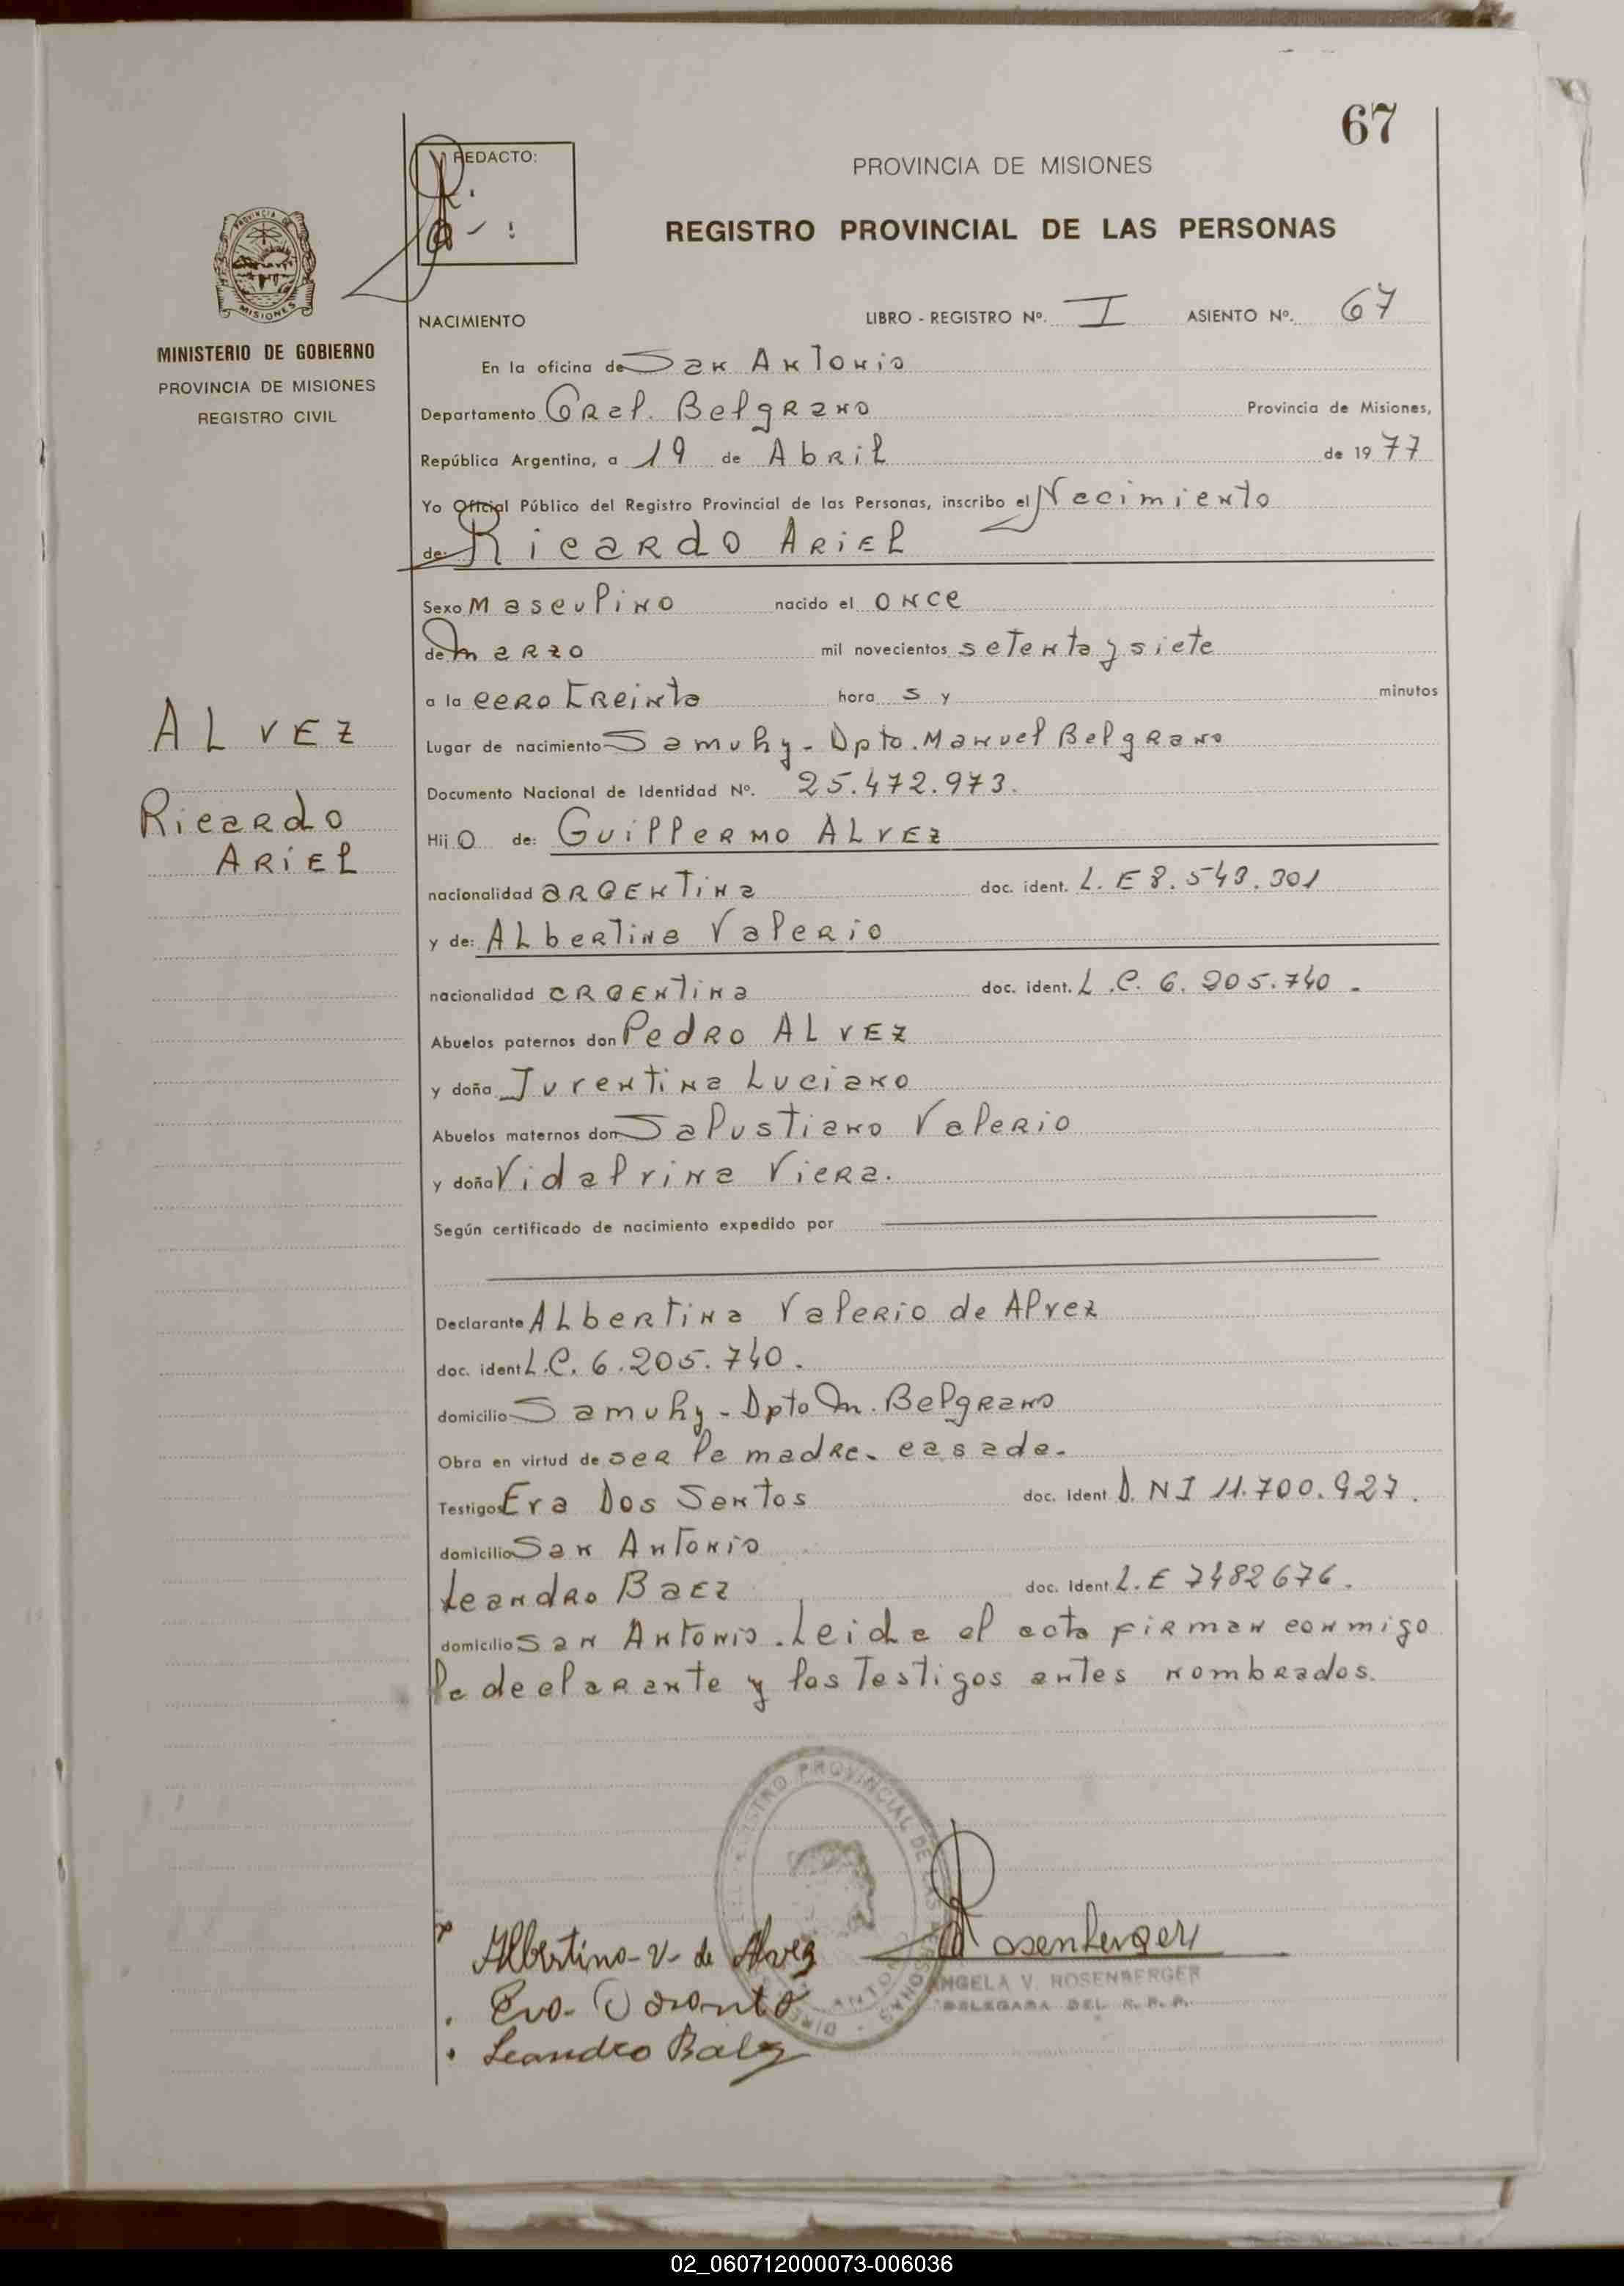 67
REDACTO:
PROVINCIA DE MISIONES
REGISTRO PROVINCIAL DE LAS PERSONAS
PROVINCIA DE
MISIONES
MINISTERIO DE GOBIERNO
PROVINCIA DE MISIONES
REGISTRO CIVIL
ALVEZ
Ricardo
ARiEL
NACIMIENTO LIBRO - REGISTRO Nº. I ASIENTO Nº. 67
En la oficina de San Antonio
Departamento Gral. Belgrano Provincia de Misiones,
República Argentina, a 19 de Abril de 1977
Yo Oficial Público del Registro Provincial de las Personas, inscribo el Nacimiento
de: Ricardo Ariel
Sexo Masculino nacido el once
de Marzo mil novecientos setenta y siete
a la cero treinta hora s y minutos
Lugar de nacimiento Samuhy - Dpto. Manuel Belgrano
Documento Nacional de Identidad Nº. 25.472.973.
Hijo de: Guillermo ALVEZ
nacionalidad argentina doc. ident. L. E 8.543.301
y de: Albertina Valerio
nacionalidad argentina doc. ident. L.C. 6.205.740.
Abuelos paternos don Pedro ALVEZ
y doña Juventina Luciano
Abuelos maternos don Salustiano Valerio
y doña Vidalvina Viera.
Según certificado de nacimiento expedido por
Declarante Albertina Valerio de Alvez
doc. ident L.C. 6.205.740.
domicilio Samuhy - Dpto M. Belgrano
Obra en virtud de ser la madre. casada.
Testigos Eva Dos Santos doc. Ident D. N I 11.700.927.
domicilio San Antonio
Leandro Baez doc. Ident L. E 7482676.
domicilio San Antonio. Leida el acta firman conmigo
la declarante y los testigos antes nombrados.
REGISTRO PROVINCIAL DE LAS PERSONAS
Albertina - V - de Alvez
Rosenberger
ANGELA V. ROSENBERGER
DELEGADA DEL R. P. P.
Eva
Leandro Baez
02_060712000073-006036